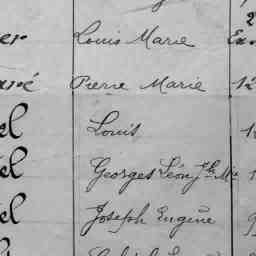 er Louis Marie
aré Pierre Marie 12
el Louis 1
el Georges Léon Jh Mie 1
el Joseph Eugène 9